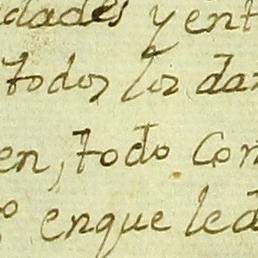 dades y ent
todos los dan
en, todo Con
º enque led